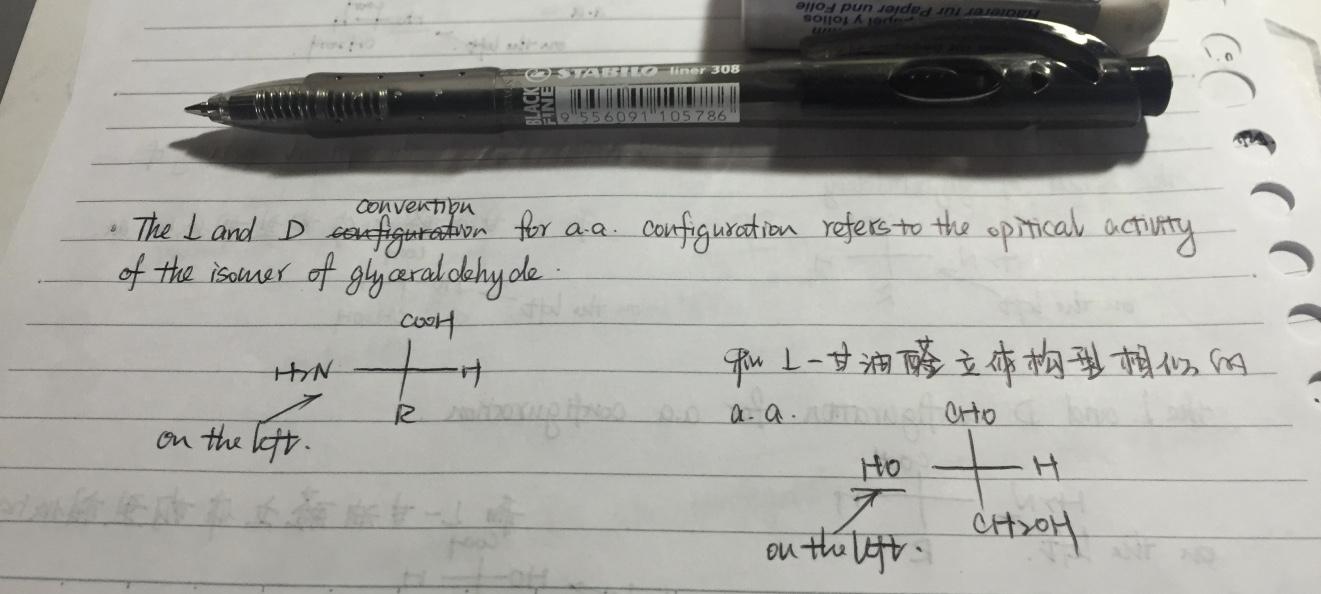 Radierer für Papier und Folie
STABILO liner 308
BLACK
FINE
9 556091 105786
convention
The L and D configuration for a.a. configuration refers to the opitical activity
of the isomer of glyceraldehyde.
COOH
H2N H
R
on the left.
和 L-甘油醛立体构型相似的
a.a.
CHO
HO H
CH2OH
on the left.